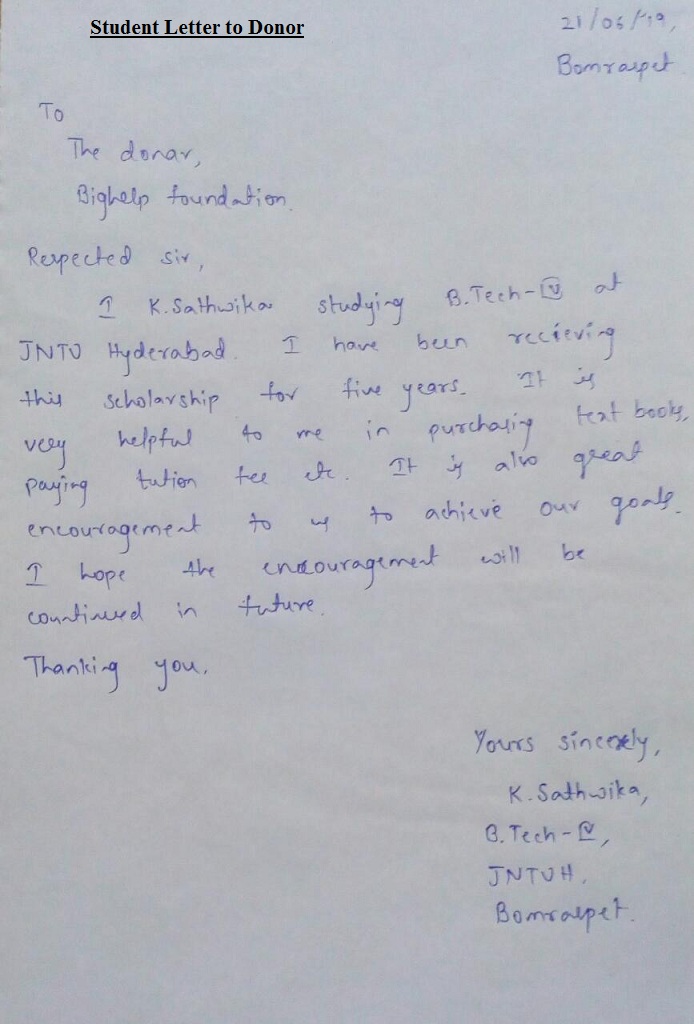 Student Letter to Donor
21/06/19,
Bomraspet
To
The donar,
Bighelp foundation.
Respected sir,
I K.Sathwika studying B.Tech-IV at
JNTU Hyderabad. I have been recieving
this scholarship for five years. It is
very helpful to me in purchasing text books,
paying tution fee etc. It is also great
encouragement to us to achieve our goals.
I hope the encouragement will be
countinued in future.
Thanking you,
Yours sincerely,
K.Sathwika,
B.Tech-IV,
JNTUH,
Bomraspet.